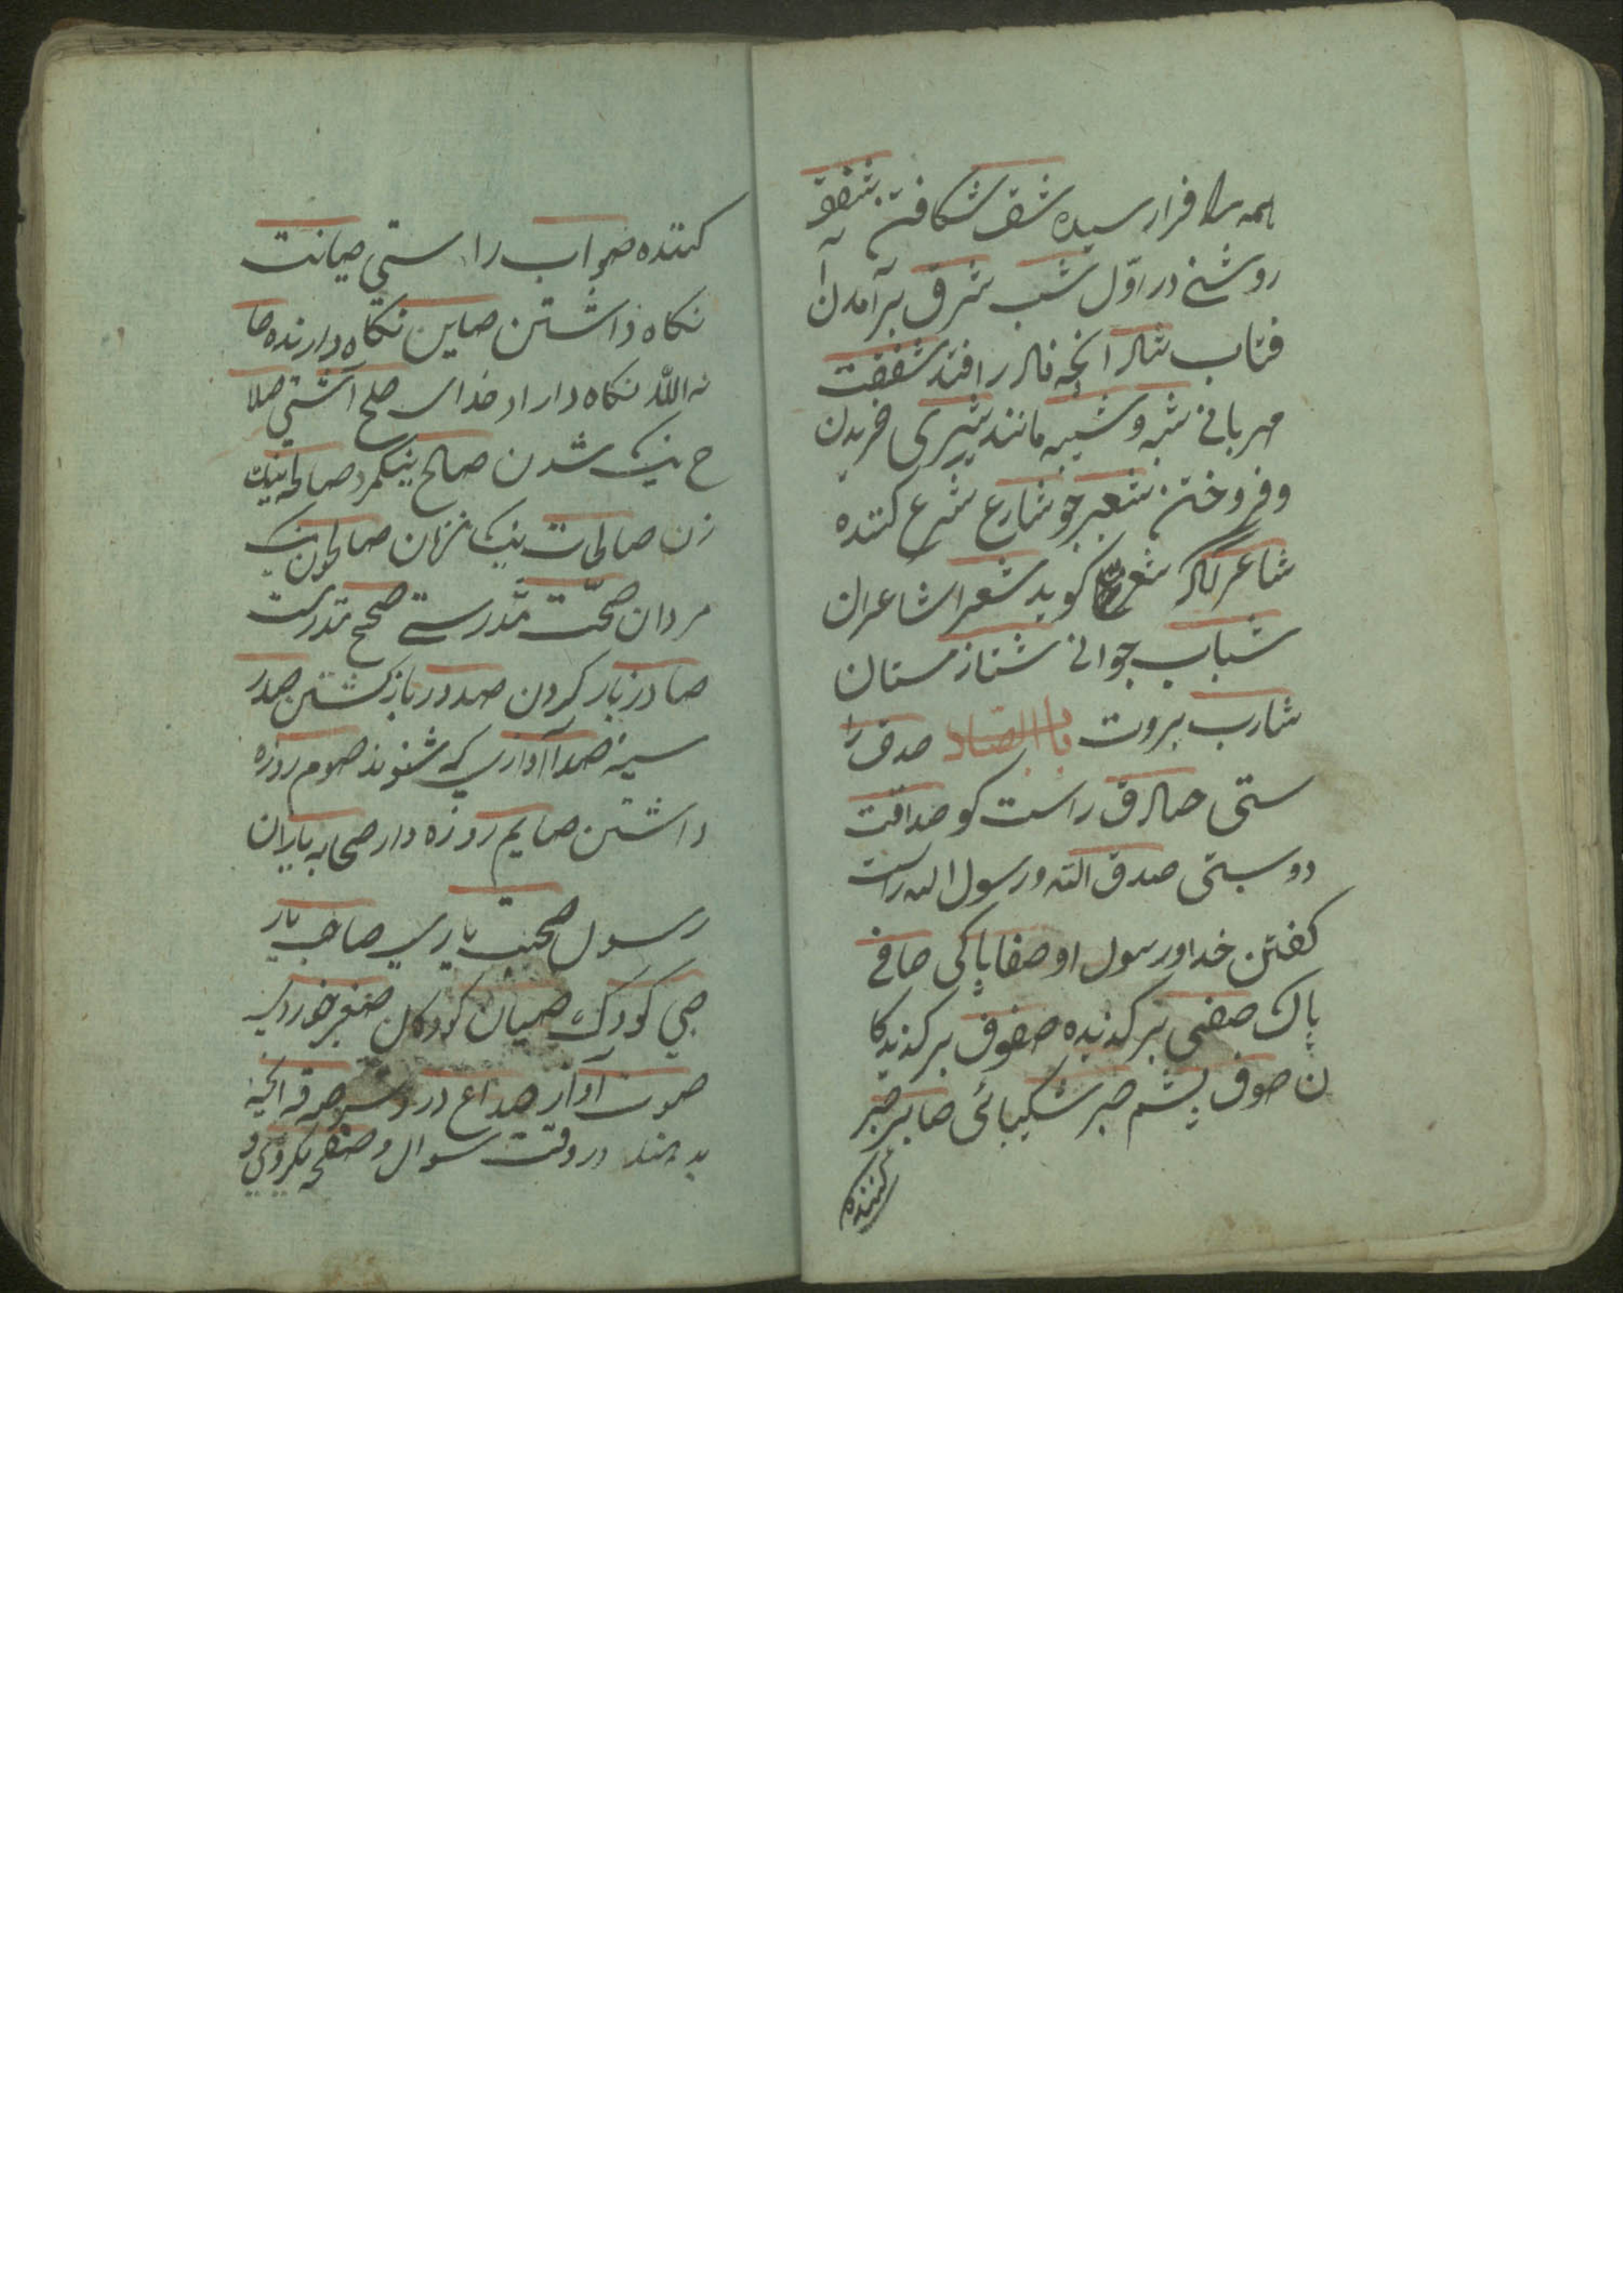 همه را فرارسیده شق شکافتن شفق
روشنی در اوّل شب شرق برآمدن آ
فتاب شاد انچه نادر افتد شفقت
مهربانی شبه و شبیه مانند شری خریدن
و فروختن شعیر جو شارع شرع کننده
شاعر انکه شعر کوید شعرا شاعران
شباب جوانی شتا زمستان
شارب بروت باالصاد صدق را
ستی صادق راست کو صداقت
دوستی صدق الله و رسول الله راست
کفتن خدا و رسول او صفا پاکی صافی
پاک صفی برکذیده صفوف برکذیدکا
ن صوف پشم صبر شکیبائی صابر صبر
کننده
کننده صواب راستی صیانت
نکاه داشتن صاین نکاه دارنده صا
نه الله نکاه داراد خدای صلح آشتی صلا
ح نیک شدن صالح نیکمرد صالحه نیک
زن صالحات نیک زنان صالحون نیک
مردان صحّت تندرستی صحیح تندرست
صادر باز کردن صدور باز کشتن صدر
سینه صدا آوازی که شنوند صوم روزه
داشتن صایم روزه دار صحابه یاران
رسول صحبت یاری صاحب یار
صبی کودک صبیان کودکان صغیر خورد
صوت آواز صداع درد سر صدقه انچه
بدهند در وقت سوال و صفحه یکروی و